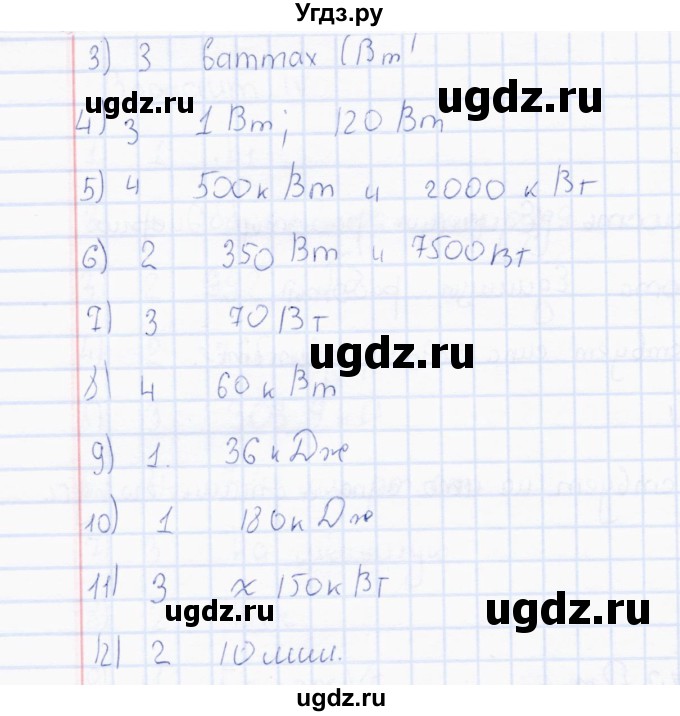 Угдз.ру
3) 3 ваттах (Вт)
ugdz.ru ugdz.ru
4) 3 1 Вт; 120 Вт
5) 4 500 кВт и 2000 кВт
6) 2 350 Вт и 7500 Вт
7) 3 70 Вт
ugdz.ru
8) 4 60 кВт
9) 1. 36 кДж
10) 1 180 кДж
11) 3 ≈ 150 кВт
ugdz.ru ugdz.ru
12) 2 10 мин.
ugdz.ru